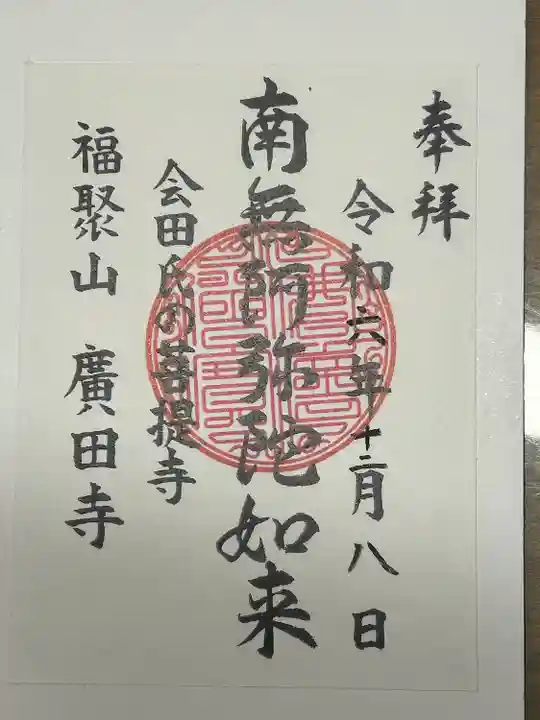 奉拝
令和六年十二月八日
南無阿弥陀如来
会田氏の菩提寺
福聚山 廣田寺